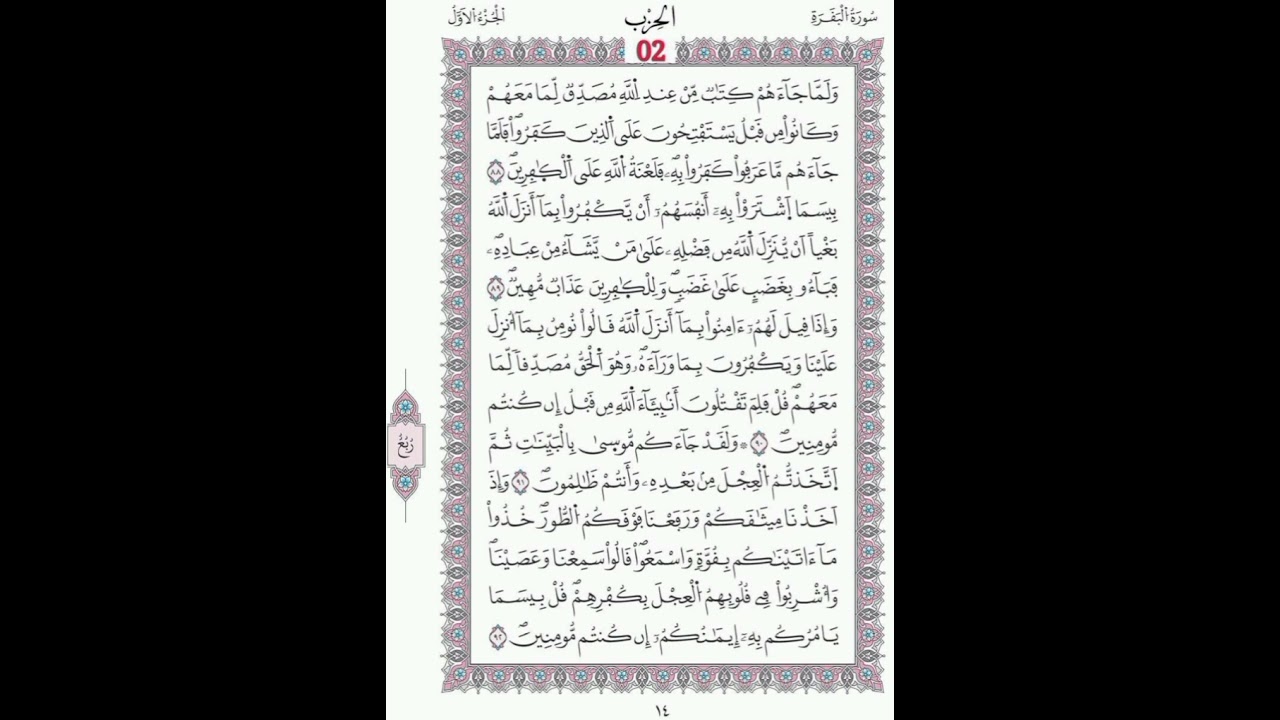 سُورَةُ الْبَقَرَةِ
الْحِزْب
الْجُزْءُ الْأَوَّلُ
02
وَلَمَّا جَآءَهُمْ كِتَٰبٞ مِّنْ عِندِ اِ۬للَّهِ مُصَدِّقٞ لِّمَا مَعَهُمْ
وَكَانُواْ مِن قَبْلُ يَسْتَفْتِحُونَ عَلَى اَ۬لذِينَ كَفَرُواْۖ فَلَمَّا
جَآءَهُم مَّا عَرَفُواْ كَفَرُواْ بِهِۦۖ فَلَعْنَةُ اُ۬للَّهِ عَلَى اَ۬لْكٰ۪فِرِينَۖ ٨٨
بِيسَمَا اَ۪شْتَرَوْاْ بِهِۦٓ أَنفُسَهُمُۥٓ أَنْ يَّكْفُرُواْ بِمَآ أَنزَلَ اَ۬للَّهُ
بَغْياً اَنْ يُّنَزِّلَ اَ۬للَّهُ مِن فَضْلِهِۦ عَلَىٰ مَنْ يَّشَآءُ مِنْ عِبَادِهِۦۖ
فَبَآءُو بِغَضَبٍ عَلَىٰ غَضَبٖۖ وَلِلْكٰ۪فِرِينَ عَذَابٞ مُّهِينٞۖ ٨٩
وَإِذَا قِيلَ لَهُمُۥٓ ءَامِنُواْ بِمَآ أَنزَلَ اَ۬للَّهُ قَالُواْ نُومِنُ بِمَآ أُنزِلَ
عَلَيْنَا وَيَكْفُرُونَ بِمَا وَرَآءَهُۥۖ وَهُوَ اَ۬لْحَقُّ مُصَدِّقاٗ لِّمَا
مَعَهُمْۖ قُلْ فَلِمَ تَقْتُلُونَ أَنۢبِئَآءَ اَ۬للَّهِ مِن قَبْلُ إِن كُنتُم
مُّومِنِينَۖ ٩٠ ۞ وَلَقَدْ جَآءَكُم مُّوسىٰ بِالْبَيِّنَٰتِ ثُمَّ
اَ۪تَّخَذتُّمُ اُ۬لْعِجْلَ مِنۢ بَعْدِهِۦ وَأَنتُمْ ظَٰلِمُونَۖ ٩١ وَإِذَ
اَخَذْنَا مِيثَٰقَكُمْ وَرَفَعْنَا فَوْقَكُمُ اُ۬لطُّورَۖ خُذُواْ
مَآ ءَاتَيْنَٰكُم بِقُوَّةٖ وَاسْمَعُواْۖ قَالُواْ سَمِعْنَا وَعَصَيْنَاۖ
وَأُشْرِبُواْ فِے قُلُوبِهِمُ اُ۬لْعِجْلَ بِكُفْرِهِمْۖ قُلْ بِيسَمَا
يَامُرُكُم بِهِۦٓ إِيمَٰنُكُمُۥٓ إِن كُنتُم مُّومِنِينَۖ ٩٢
رُبُعُ
١٤